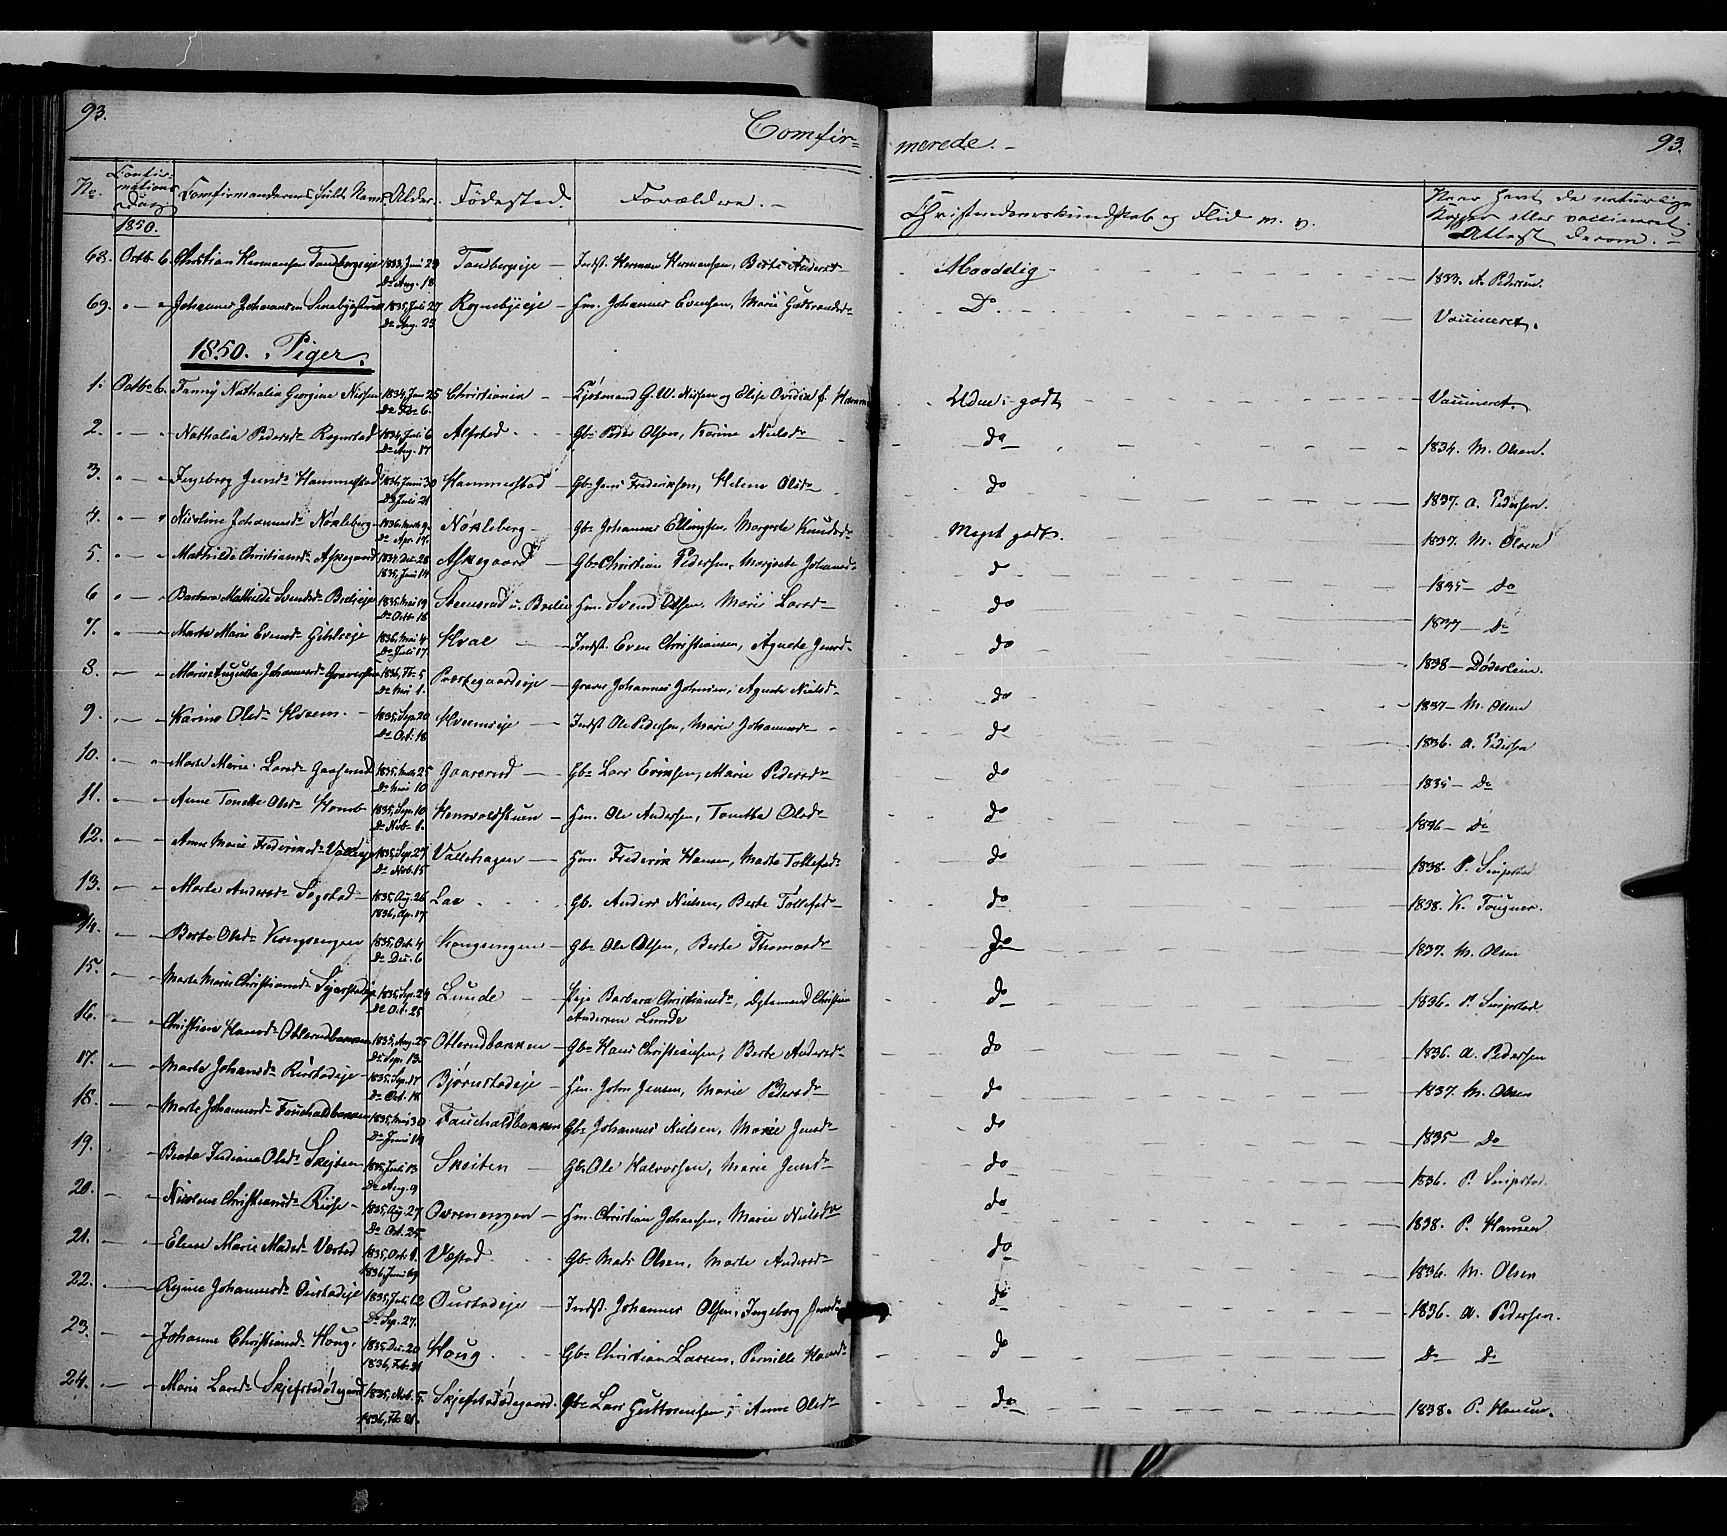 93.
Comfir=
merede. -
93.
No.
Confir-
mations
Dag
Comfirmandernes fulde Navn
Alder.
Fødested.
Forældre. -
Christendomskundskab og Flid m. v.
Naar havt de naturlige
Kopper eller vaccineret
Attest derom. -
1850.
68. Octb. 6. Christian Hermansen Tandbergeie 1833, Juni 29 Do Aug. 18 Tandbergeie - Indst. Herman Hermansen, Berte Andersd. Maadelig 1833. A. Pedersen.
69. " - " Johannes Johannesen 1835, Juli 27 Do Aug. 23 Rognebyeie - Hm. Johannes Evensen, Marie Gulbrandsd. Do. Vaccineret.
1850. Piger.
1. Octb. 6. Fanny Nathalia Georgine Nissen 1834, Jan 25 Do Feb. 6. Christiania - Kjøbmand G. W. Nissen og Elise Ovidia f. Udm: godt Vaccineret.
2. " - " Nathalia Pedersd. Rognstad 1834, Juli 6 Do Aug. 17 Alfstad. Gb. Peder Olsen, Karine Nielsd. do 1834. M. Olsen.
3. " - " Ingeborg Jensd. Hammerstad 1836, Juni 30 Do Juli 21 Hammerstad - Gb. Jens Frederiksen, Helene Olsd. do 1837. A. Pedersen.
4. " - " Nicoline Johannesd. Nøkleberg 1836, Do Apr. 17. Nøkleberg - Gb. Johannes Ellingsen, Margrete Knudsd. Meget godt. 1837. M. Olsen
5 " - " Mathilde Christiansd. Askegaard 1834, Dec. 28 1835, Juni 14 Askegaard - Gb. Christian Pedersen, Margrete Johannsd. d 1835 - Do
6 " - " Barbara Mathilde Svendsd. 1835, Mai 19 Do Octb. 18 Stensrud u. Hm. Svend Olsen, Marie Larsd. do 1837 - Do
7. " - " Marte Marie Evensd. 1836, Mai 4 Do Juli 17. Hval - Indst. Even Christiansen, Agnete Jensd. do 1838 - Døderlein.
8. " - " Marie Augusta Johannesd. 1836, Fb. 5 Do Mai 1. Præstegaardseie - Graver Johannes Johnsen, Agnete Nielsd. do 1837 - M. Olsen
9. " - " Karine Olsd. Hveem. - 1835, Sep. 20 Do Oct. 18 Hveemseie - Indst. Ole Pedersen, Marie Johannesd. do 1836. A. Pedersen
10. " - " Marte Marie Larsd. 1835, Mar. 25 Do Mai 10 Gaarerud - Gb. Lars Eriksen, Marie Pedersd. do 1835 - Do
11. " - " Anne Tonette Olsd. 1835, Sep. 10 Do Nob. 1. Hm. Ole Andersen, Tonetha Olsd. do 1836 - Do
12. " - " Anne Marie Frederiksd. Valleeie 1835, Sep. 27 Do Nob. 15 Vallehagen - Hm. Frederik Hansen, Marte Tollefsd. do 1838. P.
13. " - " Marte Andersd. Søgstad - 1835, Aug. 26 1836, Ap. 17 Gb. Anders Nielsen, Berte Tollefsd. do 1838. K. Tougner.
14. " - " Berte Olsd. Kongsengen 1835, Oct. 4 Do Dec. 6 Kongsengen - Gb. Ole Olsen, Berte Thomasd. do 1837. M. Olsen
15. " - " Marte Marie Christiansd. 1835, Sep. 24 Do Oct. 25 Lunde - Pige Barbara Christiansd., Christian
Andersen Lunde do 1836. P.
16. " - " Christine Hansd. Otterudbakken 1835, Aug. 25 Do Sepr. 13. Otterudbakken - Gb. Hans Christiansen, Berte Andersd. do 1836. A. Pedersen
17. " - " Marte Johansd. 1835, Sep. 17 Do Oct. 18 Bjørnstadeie - Hm. John Jensen, Marie Pedersd. do 1837. M. Olsen
18. " - " Marte Johannesd. Fauchaldbakken 1835, Mai 30 Do Juni 14 Fauchaldbakken Gb. Johannes Nielsen, Marie Jensd. do 1835 - Do
19. " - " Olsd. Skejten 1835, Juli 13 Do Aug. 9 Skeiten - Gb. Ole Halvorsen, Marie Jensd. do 1836. P.
20. " - " Nicoline Christiansd. Riise - 1835, Aug. 27 Do Oct. 25. Hm. Christian Johansen, Marie Nielsd. do 1838. P. Hansen
21. " - " Eline Marie Madsd. Værsted 1835, Oct. 9. 1836, Juni 19 Gb. Mads Olsen, Marte Andersd. do 1836. M. Olsen
22. " - " Regine Johannesd. Ourstadeie 1835, Juli 12 Do Sep. 27. Ourstadeje - Indst. Johannes Olsen, Ingeborg Jensd. do 1836. A. Pedersen.
23. " - " Johanne Christiansd. Houg. 1835, Dec. 20 1836, Feb. 21 Houg. Gb. Christian Larsen, Pernille Hansd. do Do Do
24. " - " Marie Larsd. Skjefstadødegaard 1835, Nob. 5. 1836, Fb. 21. Skjefstadødegaard. Gb. Lars Guttormsen, Anne Olsd. do 1838. P. Hansen.